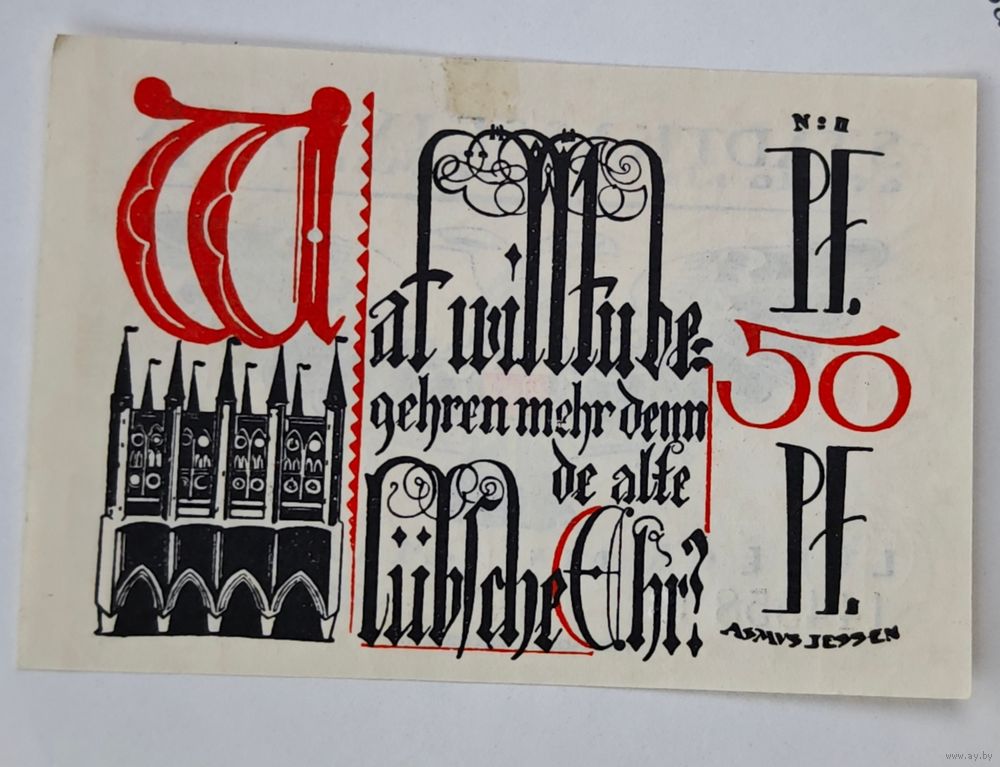 Wat willtu be-
gehren mehr denn
de alte
lübsche Ehr?
No: II
PF.
50
PF.
ASMUS JESSEN
www.ay.by